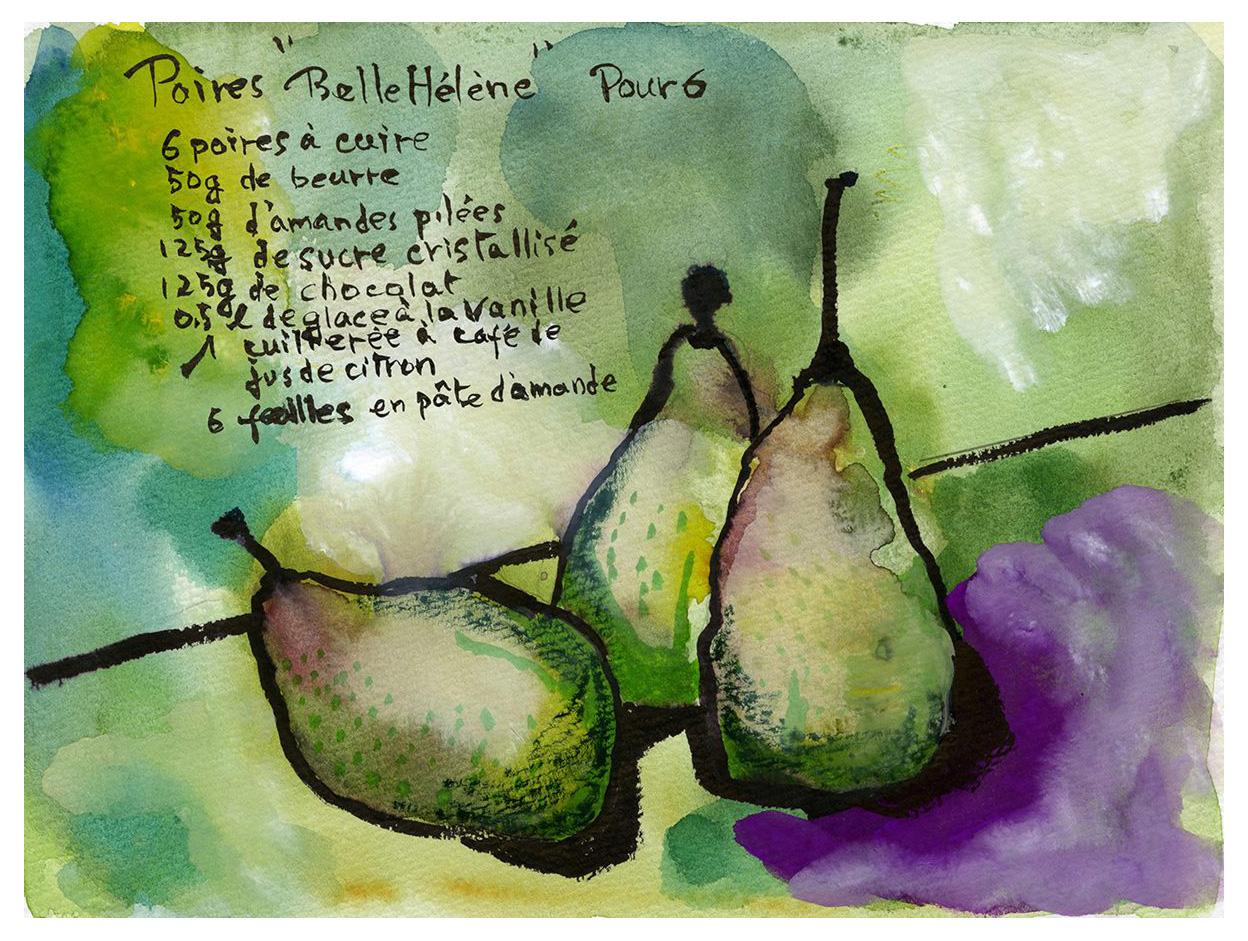 Poires "Belle Hélène" Pour 6
6 poires à cuire
50g de beurre
50g d'amandes pilées
125g de sucre cristallisé
125g de chocolat
0,5 l de glace à la Vanille
1 cuillerée à café de
jus de citron
6 feuilles en pâte d'amande